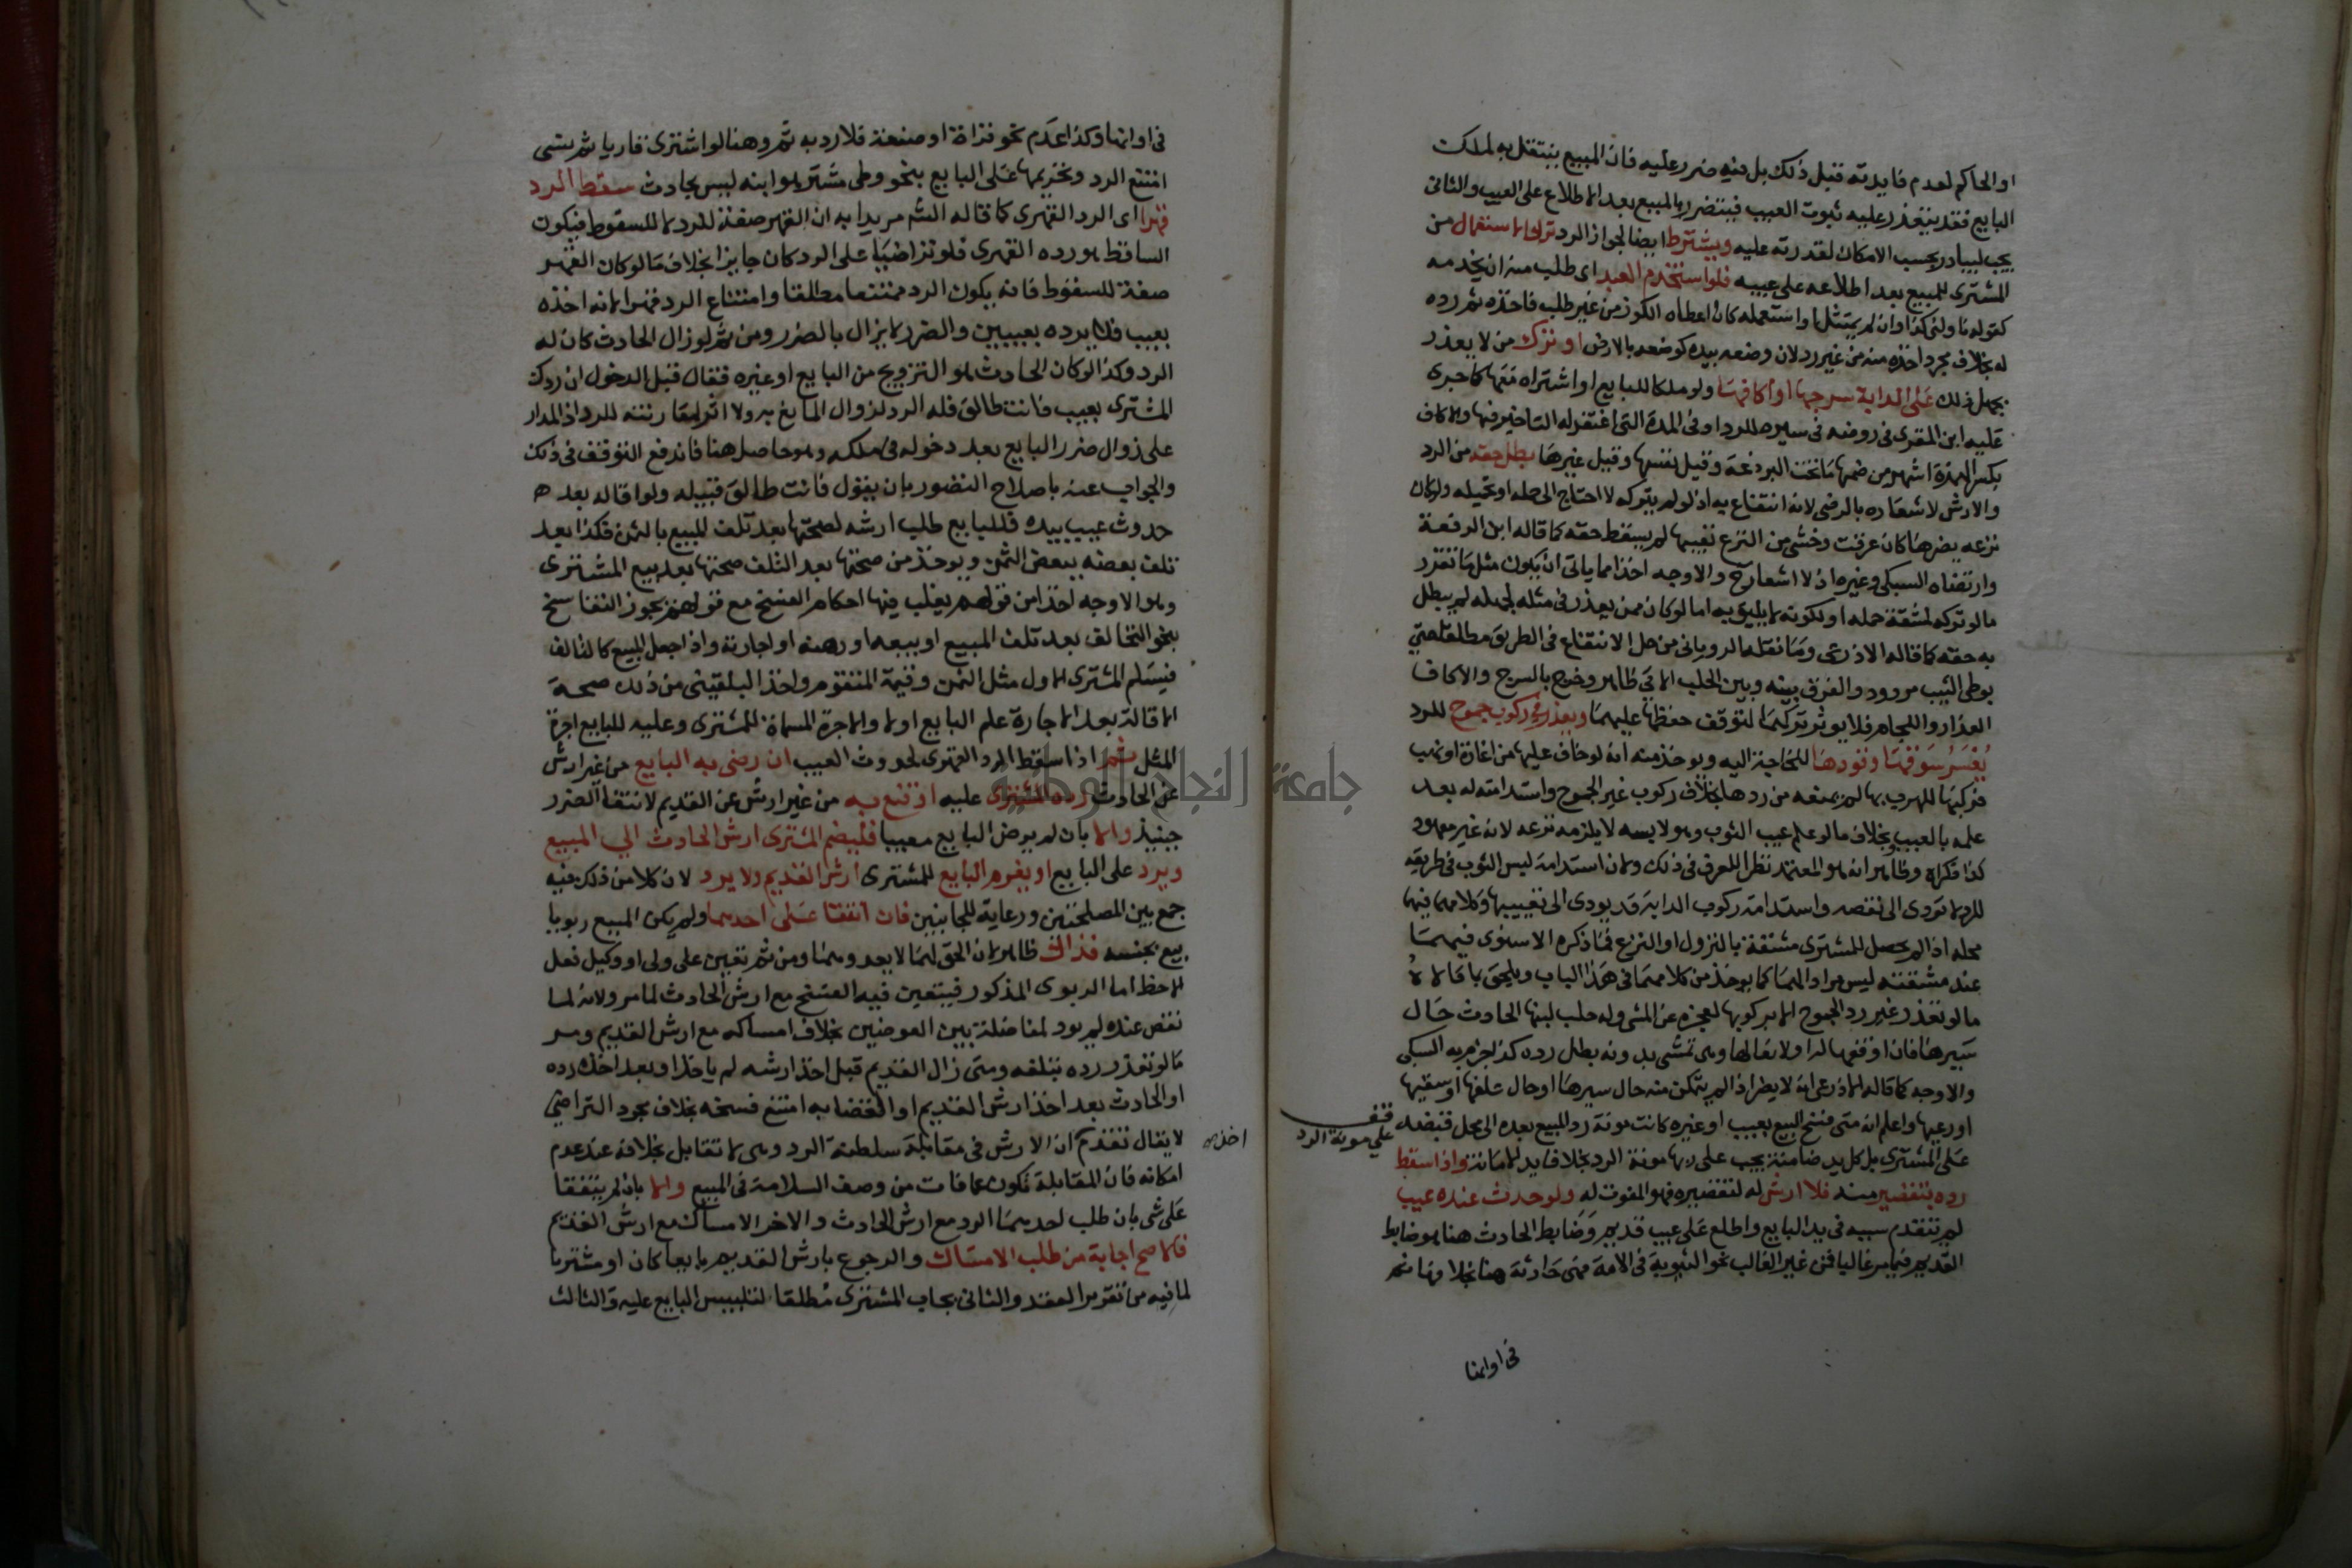 او الحاكم لعدم فايدته قبل ذلك بل فيه ضرر عليه فان المبيع ينتقل به لملك
البايع فقد يتعذر عليه ثبوت العيب فيتضرر بالمبيع بعد الاطلاع على العيب والثانى
يجب ليبادر بحسب الامكان لقدرته عليه ويشترط ايضا لجواز الرد ترك الاستعمال من
المشترى للمبيع بعد اطلاعه على عيبه فلو استخدم العبد اى طلب منه ان يخدمه
كقوله ناولنى كذا وان لم يمتثل او استعمله كان اعطاه الكوز من غير طلب فاخذه ثم رده
له بخلاف مجرد اخذه منه من غير رد لان وضعه بيده كوضعه بالارض او ترك من لا يعذر
بجهل ذلك على الدابة سرجها او اكافها ولو ملكا للبايع او اشتراه معها كما جرى
عليه ابن المقرى فى روضه فى سيره للرد او فى المدة التى اغتفر له التاخير فيها والاكاف
بكسر الهمزة اشهر من ضمها ما تحت البردعة وقيل نفسها وقيل غيرها بطل حقه من الرد
والارش لاشعاره بالرضى لانه انتفاع به اذ لو لم يتركه لاحتاج الى حمله او تحميله ولو كان
نزعه يضرها كان عرقت وخشى من النزع تعييبها لم يسقط حقه كما قاله ابن الرفعة
وارتضاه السبكى وغيره اذ لا اشعار ح والاوجه اخذا مما ياتى ان يكون مثل ما تقرر
ما لو تركه لمشقة حمله او لكونه لا يليق به اما لو كان ممن يعذر فى مثله لجهله لم يبطل
به حقه كما قاله الاذرعى وما نقله الرويانى من حل الانتفاع فى الطريق مطلقا حتى
بوطى الثيب مردود والفرق بينه وبين الحلب الاتى ظاهر وخرج بالسرج والاكاف
العذار واللجام فلا يوثر تركهما لتوقف حفظها عليهما ويعذر فى ركوب جموح للرد
يعسر سوقها وقودها للحاجة اليه ويوخذ منه انه لو خاف عليها من اغارة او نهب
فركبها للهرب بها لم يمنعه من ردها بخلاف ركوب غير الجموح واستدامته له بعد
علمه بالعيب بخلاف ما لو علم عيب الثوب وهو لابسه لا يلزمه نزعه لانه غير معهود
كذا ذكراه وظاهر انه هو المعتمد نظرا للعرف فى ذلك ولان استدامة لبس الثوب فى طريقه
للرد لا تودى الى نقصه واستدامة ركوب الدابة قد يودى الى تعييبها وكلامهما فيها
محله اذا لم يحصل للمشترى مشقة بالنزول او النزع فما ذكره الاسنوى فيهما
عند مشقته ليس مراد الهما كما يوخذ من كلامهما فى هذا الباب ويلحق بما قالاه
ما لو تعذر غير رد الجموح الا بركوبها لعجزه عن المشى وله حلب لبنها الحادث حال
سيرها فان اوقفها له او لانعالها وهى تمشى بدونه بطل رده كذا جزم به السبكى
والاوجه كما قاله الاذرعى انه لا يضر اذا لم يتمكن منه حال سيرها او حال علفها او سقيها
او رعيها واعلم انه متى فسخ البيع بعيب او غيره كانت مونة رد المبيع بعده الى محل قبضه
على المشترى بل كل يد ضامنة يجب على ربها مونة الرد بخلاف يد الامانة واذا سقط
رده بتقصير منه فلا ارش له لتقصيره فهو المفوت له ولو حدث عنده عيب
لم يتقدم سببه فى يد البايع واطلع على عيب قديم وضابط الحادث هنا هو ضابط
القديم فيما مر غالبا فمن غير الغالب نحو الثيوبة فى الامة فهى حادثة هنا بخلافها ثم
فى اوانها
قف
على مونة الرد
فى اوانها وكذا عدم نحو قراة او صنعة فلا رد به ثم وهنا لو اشترى قاريا ثم نسى
امتنع الرد وتحريمها على البايع بنحو وطى مشتر هو ابنه ليس بحادث سقط الرد
قهرا اى الرد القهرى كما قاله الشم مريدا به ان القهر صفة للرد لا للسقوط فيكون
الساقط هو رده القهرى فلو تراضيا على الرد كان جايزا بخلاف ما لو كان القهر
صفة للسقوط فانه يكون الرد ممتنعا مطلقا وامتناع الرد قهرا لانه اخذه
بعيب فلا يرده بعيبين والضرر لا يزال بالضرر ومن ثم لو زال الحادث كان له
الرد وكذا لو كان الحادث هو التزويج من البايع او غيره فقال قبل الدخول ان ردك
المشترى بعيب فانت طالق فله الرد لزوال المانع به ولا اثر لمقارنته للرد اذ المدار
على زوال ضرر البايع بعد دخوله فى ملكه وهو حاصل هنا فاندفع التوقف فى ذلك
والجواب عنه باصلاح التصور بان يقول فانت طالق قبيله ولو اقاله بعد
حدوث عيب بيده فللبايع طلب ارشه لصحتها بعد تلف المبيع بالثمن فكذا بعد
تلف بعضه ببعض الثمن ويوخذ من صحتها بعد التلف صحتها بعد بيع المشترى
وهو الاوجه اخذا من قولهم يغلب فيها احكام الفسخ مع قولهم يجوز التفاسخ
بنحو التخالف بعد تلف المبيع او بيعه او رهنه او اجارته واذا جعل المبيع كالتالف
فيسلم المشترى الاول مثل الثمن وقيمة المتقوم واخذ البلقينى من ذلك صحة
الاقالة بعد الاجارة علم البايع اولا والاجرة المسماة للمشترى وعليه للبايع اجرة
المثل ثم اذا سقط الرد القهرى لحدوث العيب ان رضى به البايع من غير ارش
عن الحادث رده المشترى عليه او قنع به من غير ارش عن القديم لانتفا الضرر
حينيذ والا بان لم يرض البايع معيبا فليضم المشترى ارش الحادث الى المبيع
ويرد على البايع او يغرم البايع للمشترى ارش القديم ولا يرد لان كلا من ذلك فيه
جمع بين المصلحتين ورعاية للجانبين فان اتفقا على احدهما ولم يكن المبيع ربويا
بيع بجنسه فذاك ظاهر لان الحق لهما لا يعدوهما ومن ثم تعين على ولى او وكيل فعل
الاحظ اما الربوى المذكور فيتعين فيه الفسخ مع ارش الحادث لما مر ولانه لما
نقص عنده لم يود لمفاضلة بين العوضين بخلاف امساكه مع ارش القديم ومر
ما لو تعذر رده بتلفه ومتى زال القديم قبل اخذ ارشه لم ياخذ او بعد اخذه رده
او الحادث بعد اخذ ارش القديم او القضا به امتنع فسخه بخلاف مجرد التراضى
لا يقال تقديم ان الارش فى مقابلة سلطنة الرد وهى لا تقابل بخلافه عند عدم
امكانه فان المقابلة تكون عما فات من وصف السلامة فى المبيع والا بان لم يتفقا
على شى بان طلب احدهما الرد مع ارش الحادث والاخر الامساك مع ارش القديم
فالاصح اجابة من طلب الامساك والرجوع بارش القديم بايعا كان او مشتريا
لما فيه من تقرير العقد والثانى يجاب المشترى مطلقا لتلبيس البايع عليه والثالث
اخذه
جامعة النجاح الوطنية